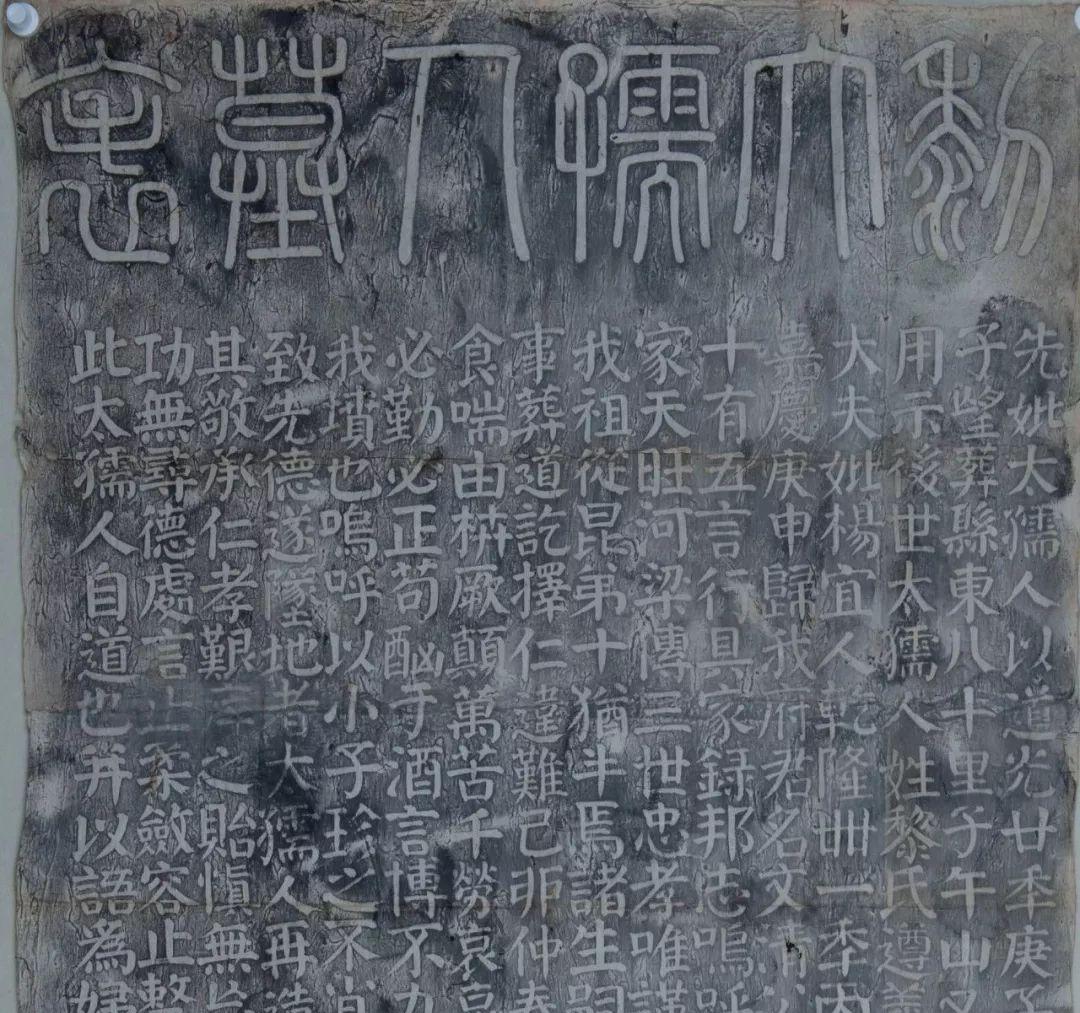 黎太孺人墓志
先妣太孺人以道光廿年庚子
子望葬縣東八十里子午山又
用示後世太孺人姓黎氏遵義
大夫妣楊宜人乾隆卌一年丙
嘉慶庚申歸我府君名文清公
十有五言行具家録邦志嗚呼
家天旺河梁傳三世忠孝唯謹
我祖從昆弟十猶半焉諸生嗣
事葬道訖擇仁違難已非仲春
食喘由枿厥顛萬苦千勞哀哀
必勤必正苟酗于酒言博不力
我墳也嗚呼以小子珍之不肖
致先德遂隊地者大孺人再造
其敬承仁孝艱之貽慎無
功無尋德處言柔斂容止整
此太孺人自道也并以語爲婦